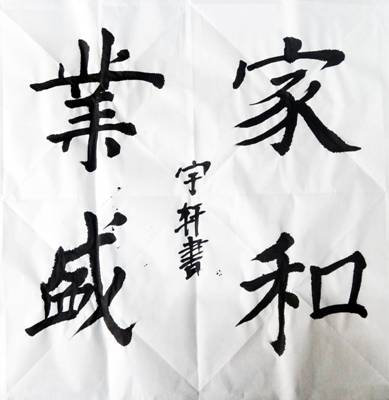 家和
業盛
宇軒書